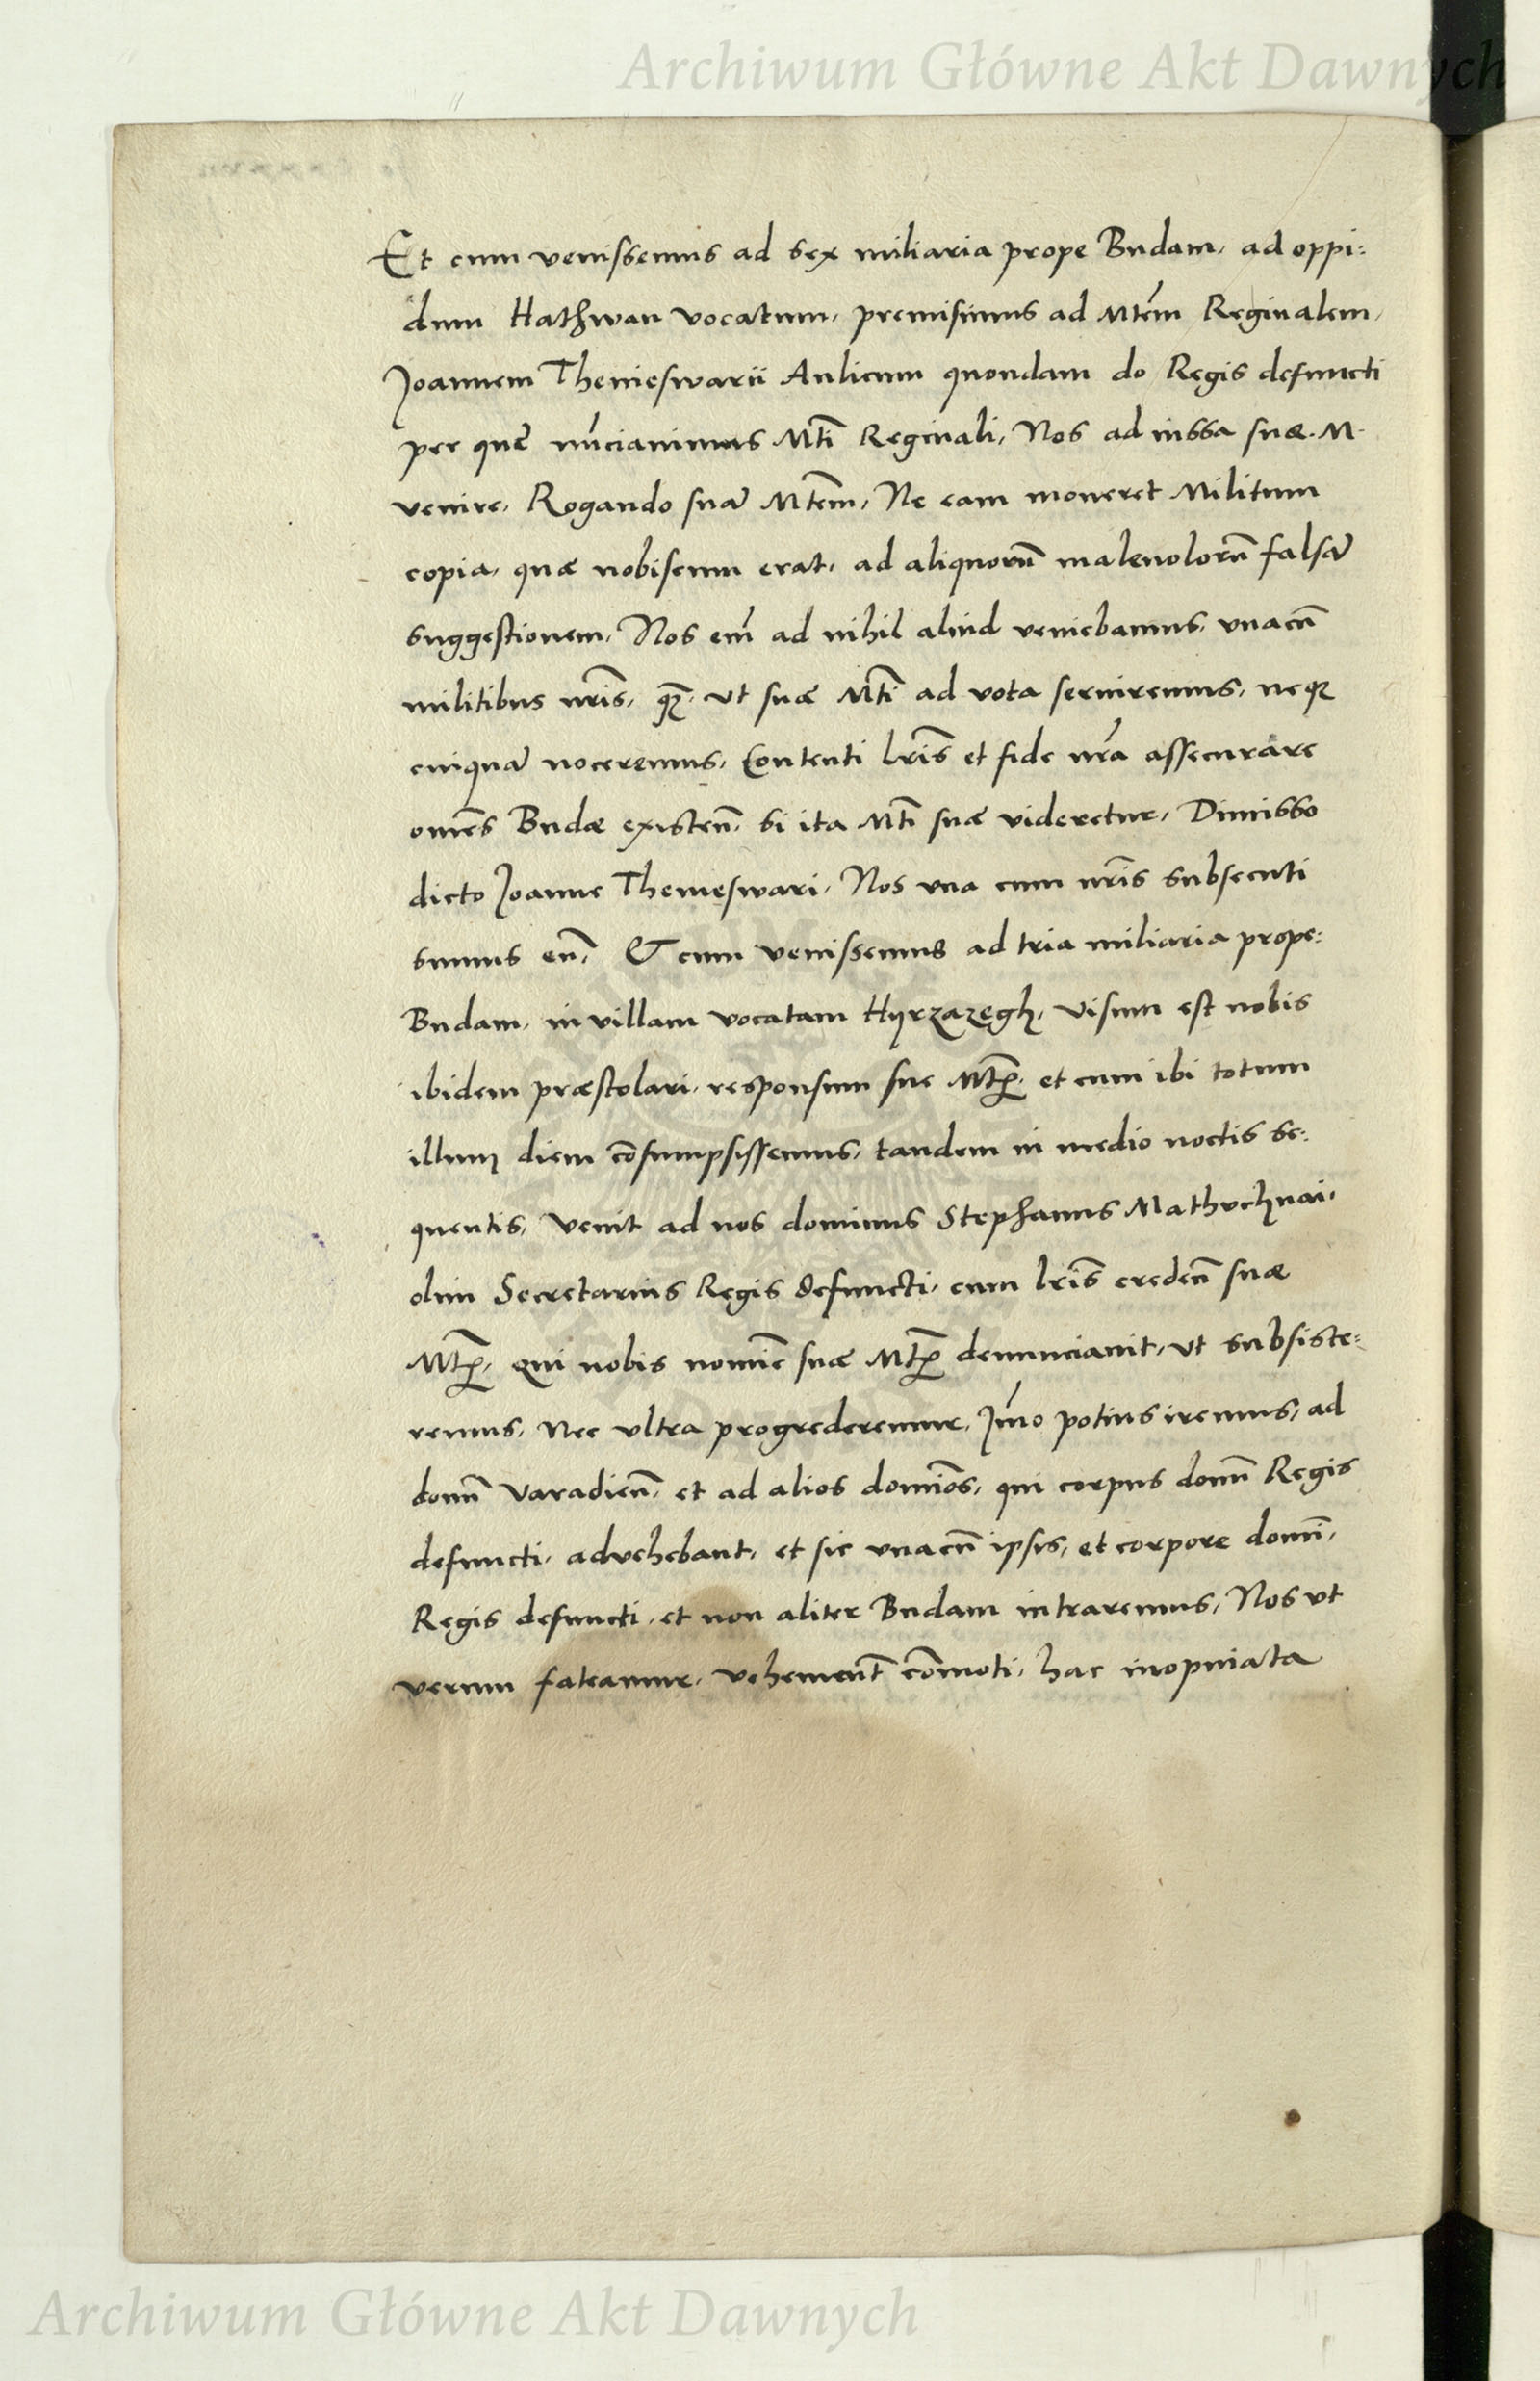 Archiwum Główne Akt Dawnych
Et cum venissemus ad sex miliaria prope Budam, ad oppi:
dum Hathwan vocatum, premisimus ad Mtẽm Reginalem,
Joannem Themeswarii Aulicum quondam do Regis defuncti
per quẽ nũciauimus Mtĩ Reginali, Nos ad iussa suæ. M.
venire, Rogando suã Mtẽm, Ne eam moueret Militum
copia, quæ nobiscum erat, ad aliquorũ maleuolorũ falsã
suggestionem, Nos em̃ ad nihil aliud veniebamus, vnacũ
militibus nr̃is, qꝫ̃, vt suæ Mtĩ ad vota seruiremus, neqꝫ
cuiquã noceremus, Contenti lr̃is et fide nr̃a assecurare
omẽs Budæ existeñ, si ita Mtĩ suæ videretur, Dimisso
dicto Joanne Themeswari, Nos vna cum nr̃is subsecuti
sumus eũ, Et cum venissemus ad tria miliaria prope:
Budam, in villam vocatam Hyrzazegh, visum est nobis
ibidem præstolari, responsum sue Mtꝭ̃, et cum ibi totum
illum diem cõsumpsissemus, tandem in medio noctis se:
quentis, venit ad nos dominus Stephanus Mathvchnai,
olim Secretarius Regis defuncti, cum lr̃is credeñ suæ
Mtꝭ̃, qui nobis nomiẽ suæ Mtꝭ̃ denunciauit, vt subsiste:
remus, nec vltra progrederemur, Jm̃o potius iremus, ad
domũ Varadieñ, et ad alios domiõs, qui corpus domĩ Regis
defuncti, advehebant, et sic vnacũ ipsis, et corpore domĩ,
Regis defuncti, et non aliter Budam intraremus, Nos vt
verum fateamur, vehement̃ cõmoti, hac inopinata
Archiwum Główne Akt Dawnych